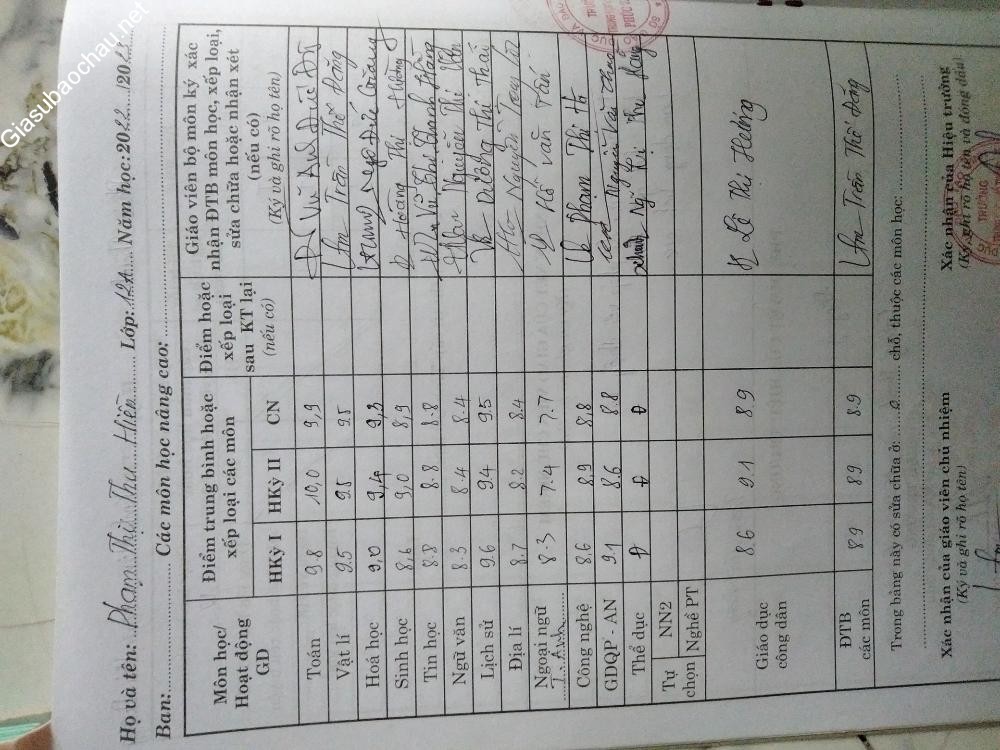 Giasubaochau.net
Họ và tên: Phạm Thị Thu Hiền Lớp: 12A Năm học: 2022 / 202
Ban: Các môn học nâng cao:
Môn học/ Hoạt động GD
Điểm trung bình hoặc xếp loại các môn
Điểm hoặc xếp loại sau KT lại (nếu có)
Giáo viên bộ môn ký xác nhận ĐTB môn học, xếp loại, sửa chữa hoặc nhận xét (nếu có) (Ký và ghi rõ họ tên)
HKỳ I HKỳ II CN
Toán 9.8 10,0 9,9 Vũ Anh Đức
Vật lí 9.5 9.5 9.5 Trần Thế Đăng
Hoá học 9,0 9,4 9,3 Ngô Đức
Sinh học 8.6 9,0 8,9 Hoàng Thị
Tin học 8.8 8.8 8.8 Vũ Thị Thanh Hằng
Ngữ văn 8.3 8.4 8.4 Nguyễn Thị Vân
Lịch sử 9.6 9.4 9.5 Dương Thị Thái
Địa lí 8.7 8.2 8.4 Nguyễn Trọng
Ngoại ngữ T. Anh 8.3 7.4 7.7 Hồ Văn
Công nghệ 8.6 8.9 8,8 Phạm Thị
GDQP - AN 9.1 8.6 8.8 Nguyễn Văn
Thể dục Đ Đ Đ Ngô Thị Thu
Tự chọn NN2
Nghề PT
Giáo dục công dân 8.6 9.1 8.9 Lê Thị Hương
ĐTB các môn 8.9 8.9 8.9 Trần Thế Đăng
Trong bảng này có sửa chữa ở: 0 chỗ, thuộc các môn học:
Xác nhận của giáo viên chủ nhiệm
(Ký và ghi rõ họ tên)
Xác nhận của Hiệu trưởng
(Ký, ghi rõ họ tên và đóng dấu)